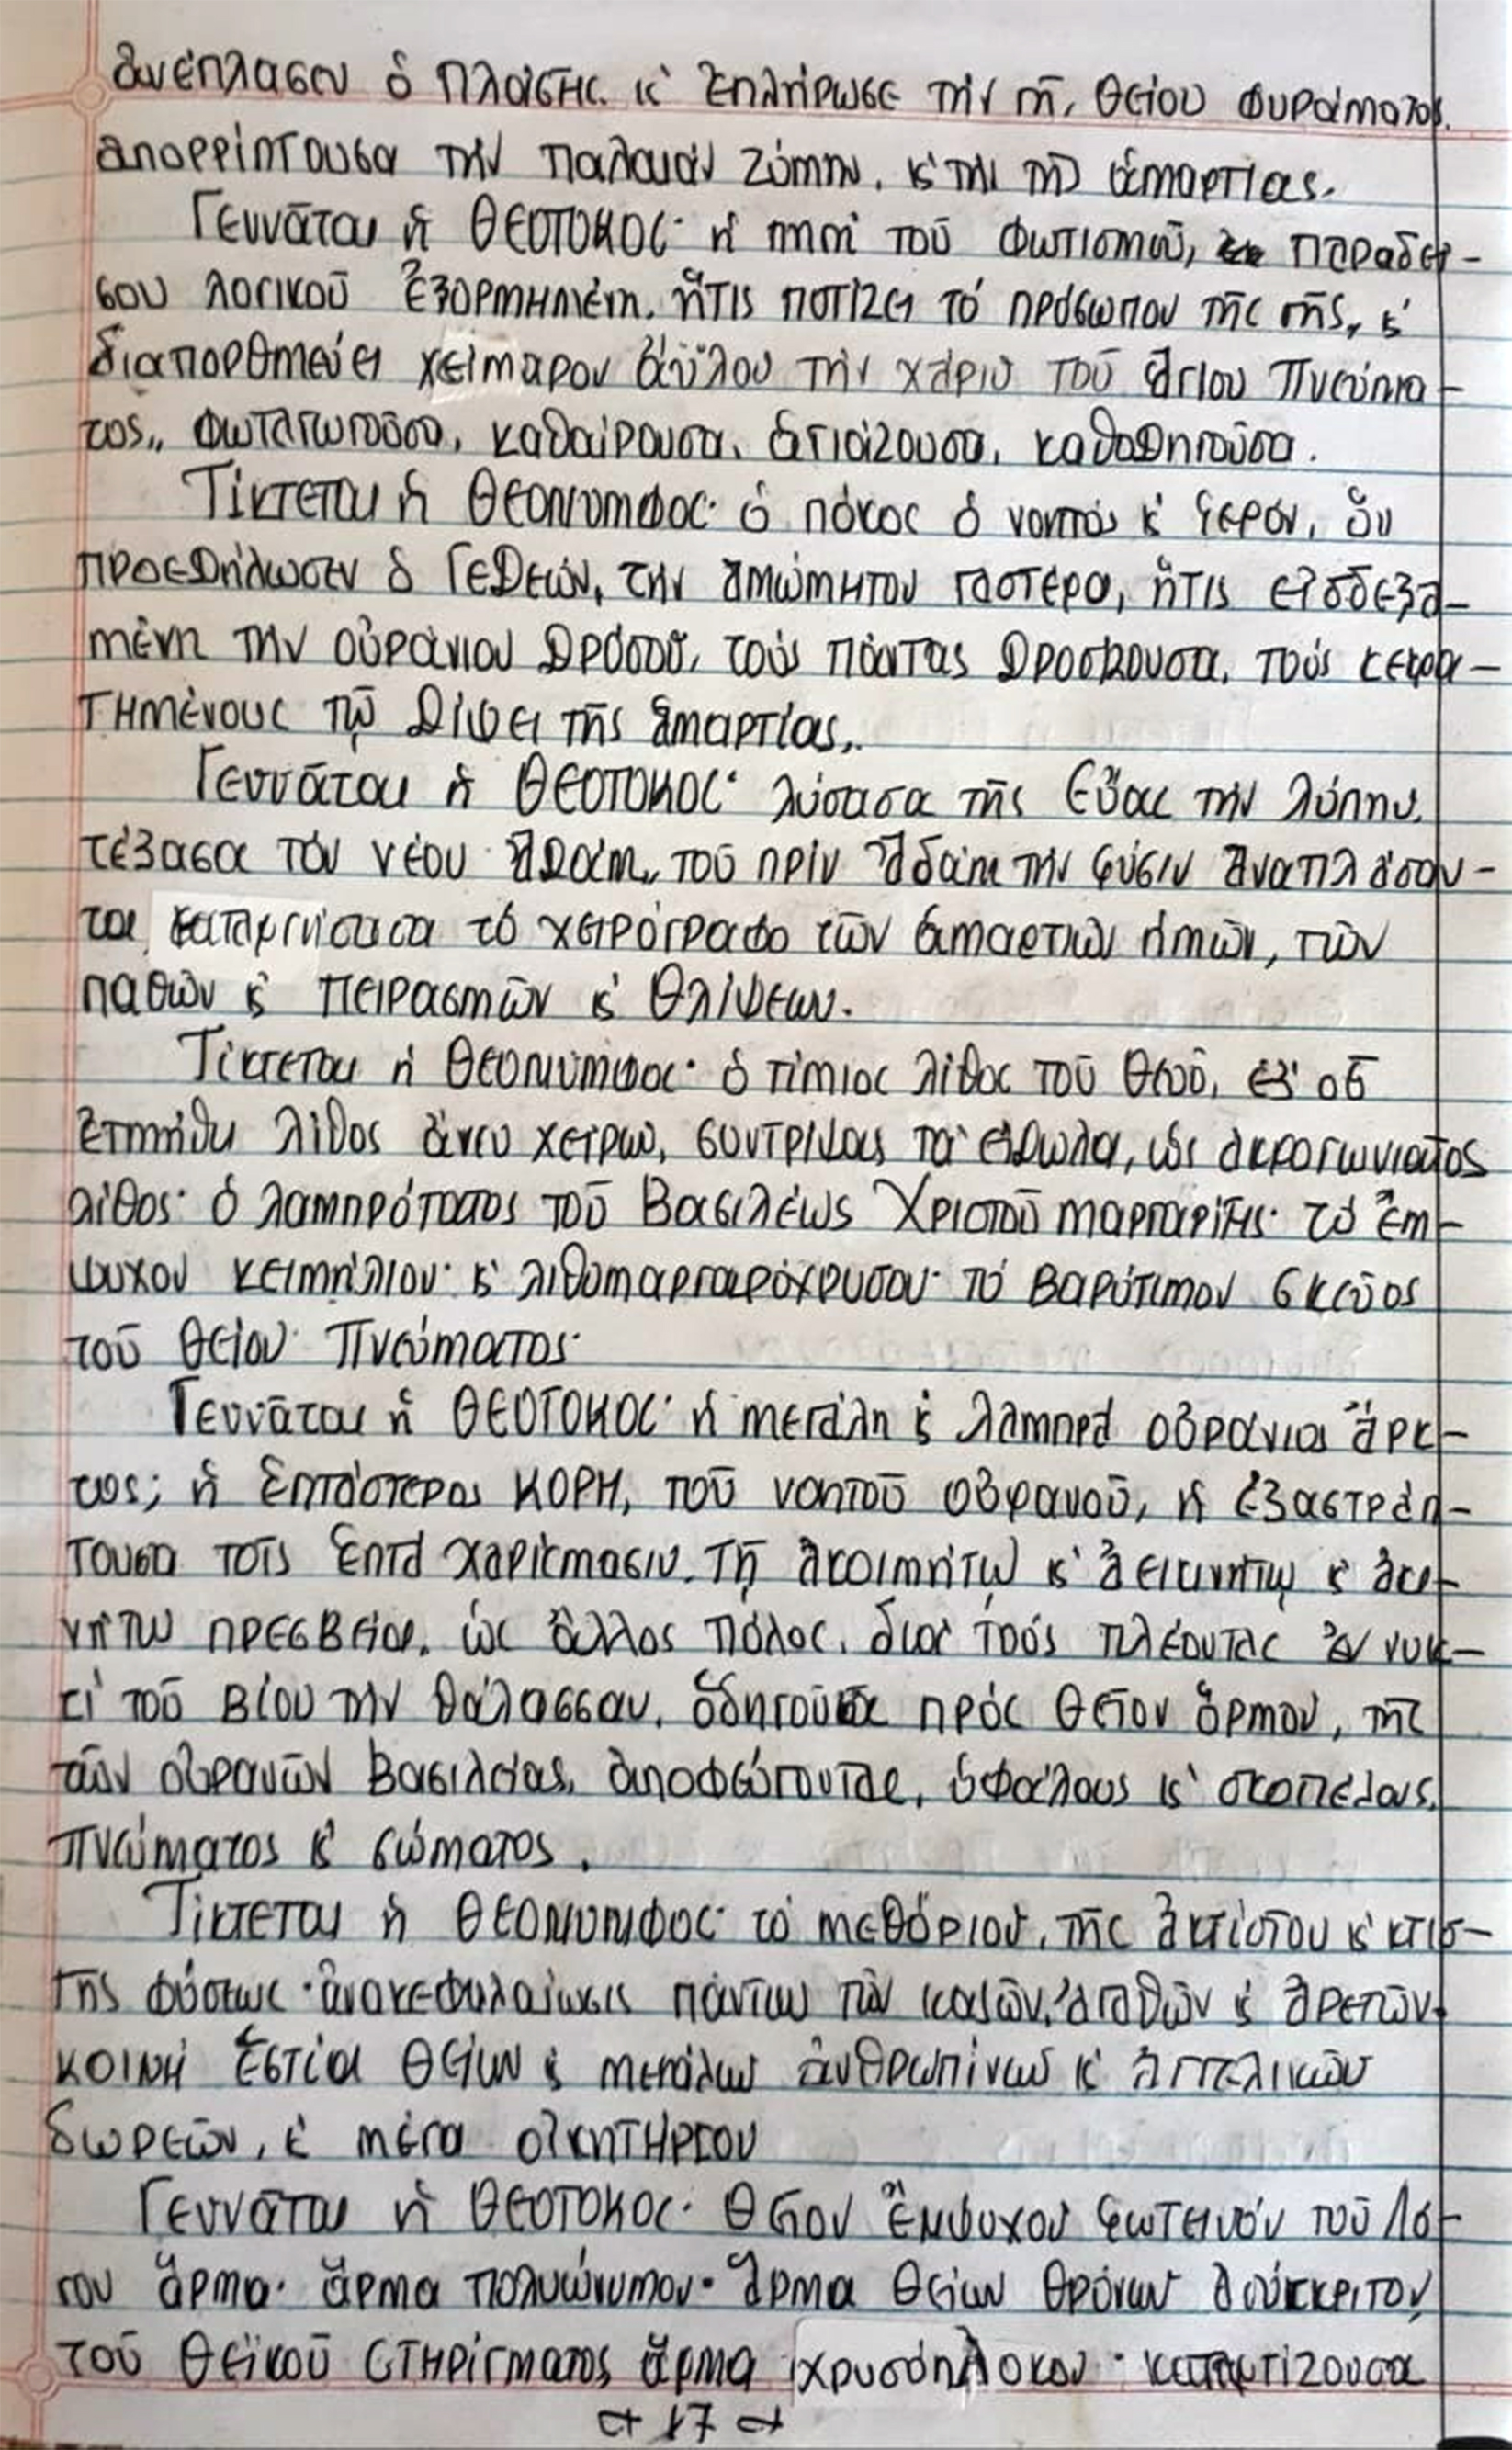 ἀνέπλασεν ὁ Πλάστης. κ' ἐπλήρωσε τήν γῆν, θείου φυράματος.
ἀπορρίπτουσα τήν παλαιάν ζύμην, κ' τήν τῆς ἁμαρτίας.
Γεννᾶται ἡ ΘΕΟΤΟΚΟΣ· ἡ πηγή τοῦ φωτισμοῦ, παραδεί-
σου λογικοῦ ἐξορμημένη, ἥτις ποτίζει τό πρόσωπον τῆς γῆς, κ'
διαπορθμεύει χείμαρον ἀΰλου τήν χάριν τοῦ ἁγίου Πνεύμα-
τος,, φωταγωγοῦσα, καθαίρουσα, ἁγιάζουσα, καθοδηγοῦσα.
Τίκτεται ἡ Θεόνυμφος· ὁ πόκος ὁ νοητός κ' ἱερόν, ὅν
προεδήλωσεν ὁ Γεδεών, τήν ἀμώμητον γαστέρα, ἥτις εἰσδεξα-
μένη τήν οὐράνιον δρόσον, τούς πάντας δροσίζουσα, τούς κεκρα-
τημένους τῷ δίψει τῆς ἁμαρτίας,.
Γεννᾶται ἡ ΘΕΟΤΟΚΟΣ· λύσασα τῆς Εὔας τήν λύπην,
τέξασα τόν νέον Ἀδάμ, τοῦ πρίν Ἀδάμ τήν φύσιν ἀναπλάσαν-
τα, καταργήσασα τό χειρόγραφο τῶν ἁμαρτιῶν ἡμῶν, τῶν
παθῶν κ' πειρασμῶν κ' θλίψεων.
Τίκτεται ἡ Θεόνυμφος· ὁ τίμιος λίθος τοῦ Θεοῦ, ἐξ' οὗ
ἐτμήθη λίθος ἄνευ χειρῶν, συντρίψας τά εἴδωλα, ὡς ἀκρογωνιαῖος
λίθος· ὁ λαμπρότατος τοῦ Βασιλέως Χριστοῦ μαργαρίτης· τό ἔμ-
ψυχον κειμήλιον· κ' λιθομαργαρόχρυσον· τό βαρύτιμον σκεῦος
τοῦ θείου Πνεύματος·
Γεννᾶται ἡ ΘΕΟΤΟΚΟΣ· ἡ μεγάλη κ' λαμπρά οὐράνια ἄρκ-
τος; ἡ ἑπτάστερος ΚΟΡΗ, τοῦ νοητοῦ οὐρανοῦ, ἡ ἐξαστράπ-
τουσα τοῖς ἑπτά χαρίσμασιν. Τῇ ἀκοιμήτῳ κ' ἀεικινήτῳ κ' ἀκι-
νήτῳ πρεσβείᾳ, ὡς ἄλλος πόλος, διά τούς πλέοντας ἐν νυκ-
τί τοῦ βίου τήν θάλασσαν, ὁδηγοῦσα πρός θεῖον ὅρμον, τῆς
τῶν οὐρανῶν Βασιλείας, ἀποφεύγοντας, ὑφάλους κ' σκοπέλους,
πνεύματος κ' σώματος.
Τίκτεται ἡ Θεόνυμφος· τό μεθόριον, τῆς ἀκτίστου κ' κτισ-
τῆς φύσεως· ἀνακεφαλαίωσις πάντων τῶν καλῶν, ἀγαθῶν κ' ἀρετῶν·
κοινή ἑστία θείων κ' μεγάλων ἀνθρωπίνων κ' ἀγγελικῶν
δωρεῶν, κ' μέγα οἰκητήριον
Γεννᾶται ἡ ΘΕΟΤΟΚΟΣ· θεῖον ἔμψυχον φωτεινόν τοῦ Λό-
γου ἅρμα· ἅρμα πολυώνυμον· ἅρμα θείων θρόνων ἀσύγκριτον,
τοῦ θεϊκοῦ στηρίγματος ἅρμα χρυσόπλοκον· καταρτίζουσα
17